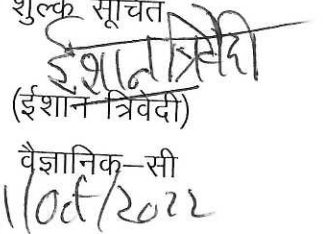 शुल्क सूचित
ईशान त्रिवेदी
(ईशान त्रिवेदी)
वैज्ञानिक–सी
11/Oct/2022